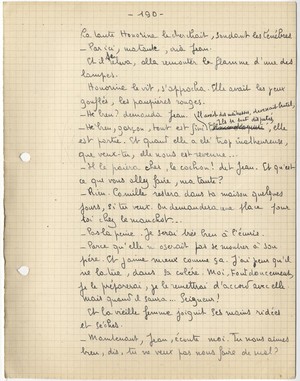 - 190 -
La tante Honorine le cherchait, sondant les ténèbres
- Par ici, ma tante, cria Jean.
Et il se leva, alla remonter la flamme d'une des
lampes.
Honorine le vit, s'approcha. Elle avait les yeux
gonflés, les paupières rouges.
- He bien? demanda Jean.
- He bien, garçon, tout est fini. elle
est partie. Et quand elle a été trop malheureuse,
que veux-tu, elle nous est revenue...
- Il le paiera cher, le cochon! dit Jean. Et qu'est
ce que vous allez faire, ma tante?
- Rien. Camille restera dans ta maison quelques
jours, si tu veux. On demandera une place pour
toi chez le manchot.
- Pas la peine. Je serai très bien à l'écurie.
- Parce qu'elle n'oserait pas se montrer à son
père. Et j'aime mieux comme ça. J'ai peur qu'il
ne la tue, dans sa colère. Moi, tout doucement,
je le préparerai, je le remettrai d'accord avec elle
mais quand il saura... Seigneur!
Et la vieille femme joignit ses mains ridées
et sèches.
- Maintenant, Jean, écoute moi. Tu nous aimes
bien, dis, tu ne veux pas nous faire de mal?